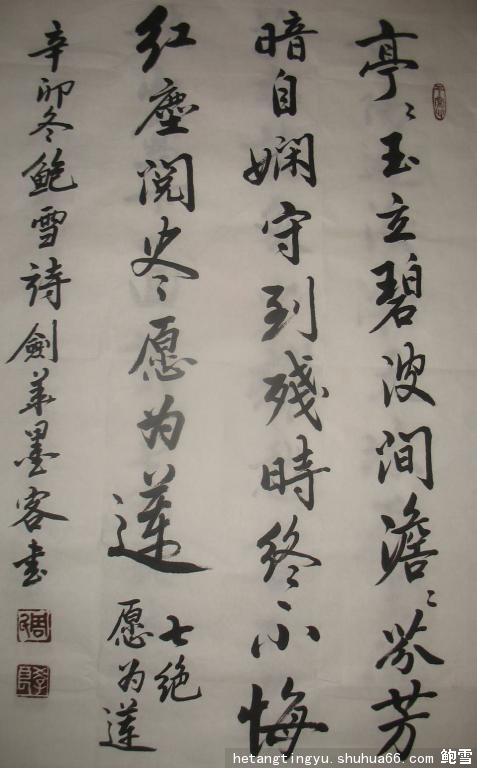 亭〻玉立碧波涧澹〻芬芳
暗自娴守到殘時终不悔
红塵阅尽愿为莲
七绝
愿为莲
辛卯冬鲍雪詩劍華墨客书
hetangtingyu.shuhua66.com 鲍雪